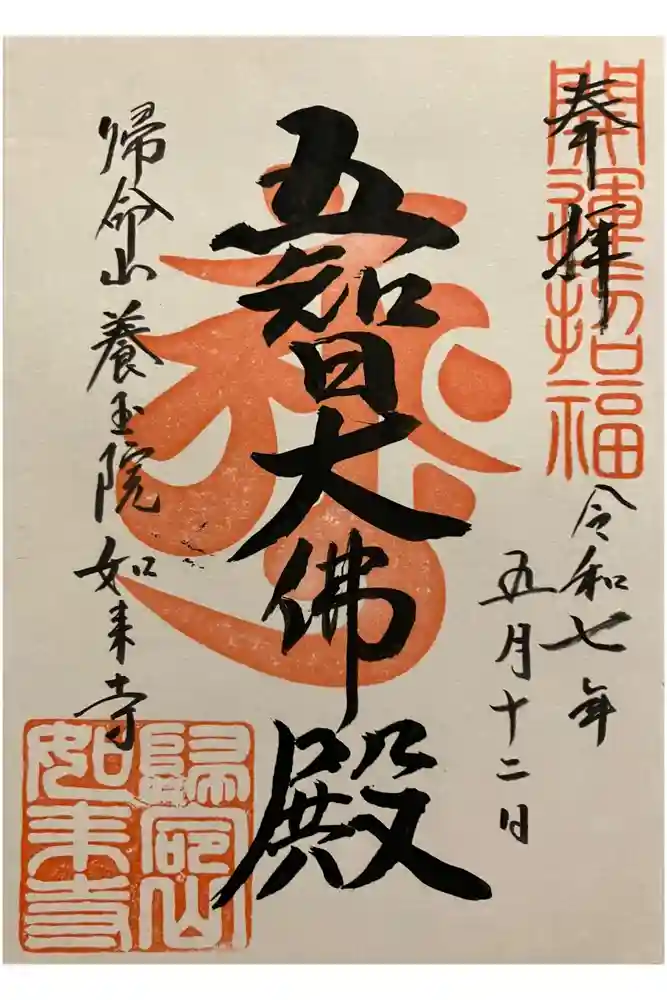 開運招福
奉拝
令和七年
五月十二日
五智大佛殿
帰命山養玉院如来寺
歸命山
如来寺